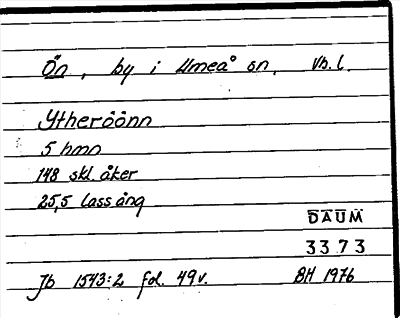 Ön, by i Umeå sn, Vb.l.
Ytheröönn
5 hmn
148 skl. åker
25,5 lass äng
DAUM
3373
Jb 1543:2 fol. 49v. BH 1976